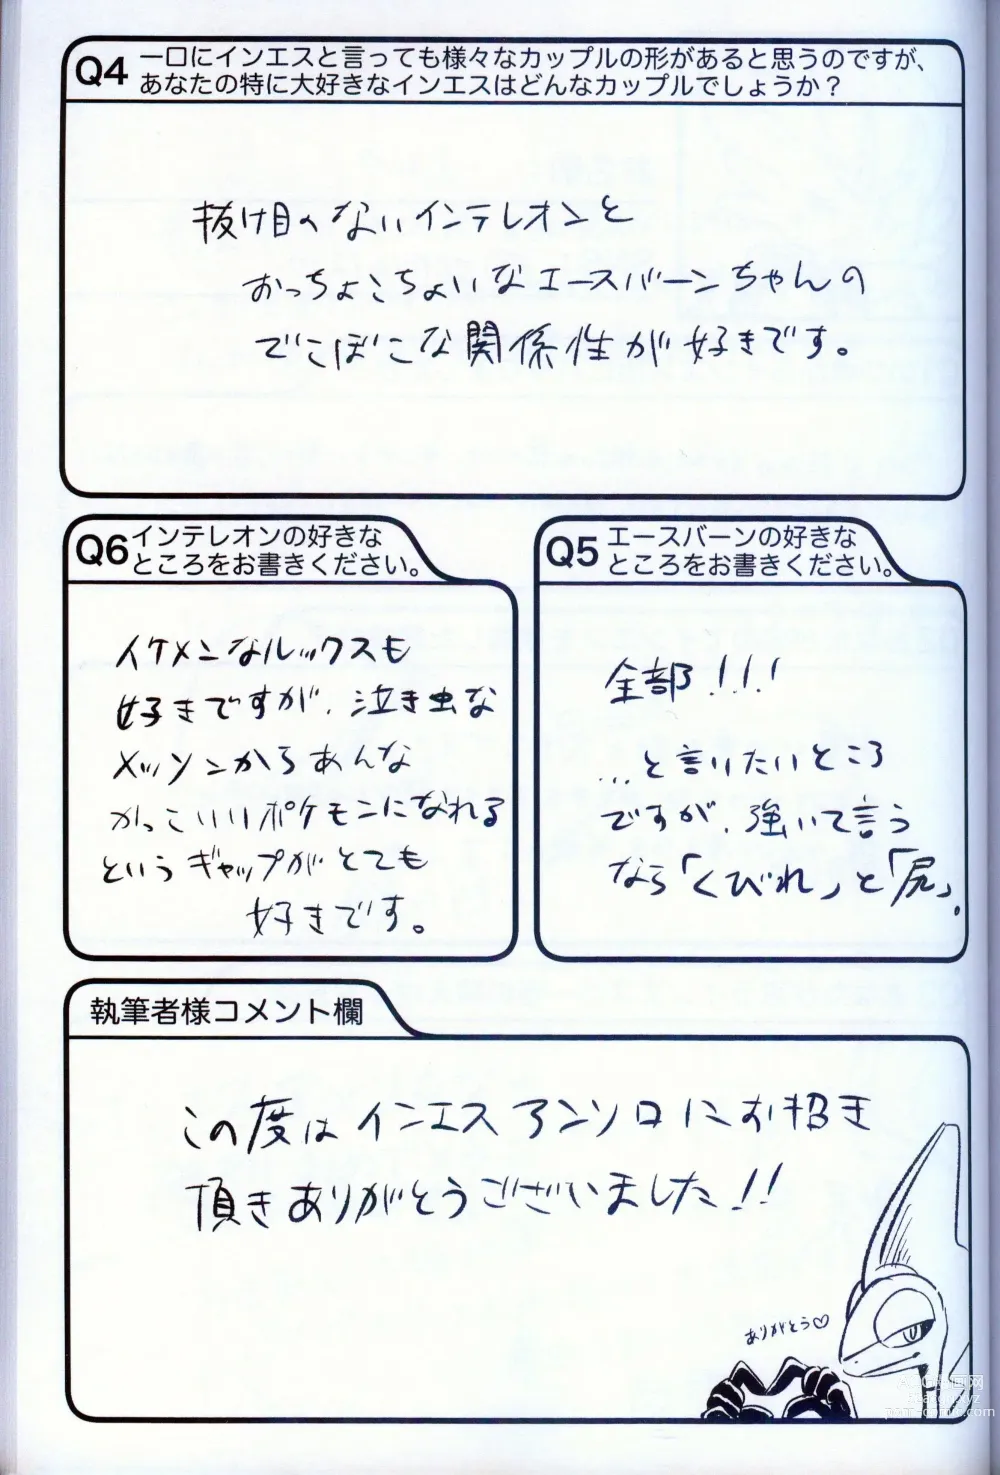 Q4
一口にインエスと言っても様々なカップルの形があると思うのですが、
あなたの特に大好きなインエスはどんなカップルでしょうか？
抜け目のないインテレオンと
おっちょこちょいなエースバーンちゃんの
でこぼこな関係性が好きです。
Q5
エースバーンの好きな
ところをお書きください。
全部！！！
…と言いたいところ
ですが、強いて言う
なら「くびれ」と「尻」。
Q6
インテレオンの好きな
ところをお書きください。
イケメンなルックスも
好きですが、泣き虫な
メッソンからあんな
かっこいいポケモンになれる
というギャップがとても
好きです。
執筆者様コメント欄
この度はインエスアンソロにお招き
頂きありがとうございました！！
ありがとう♡